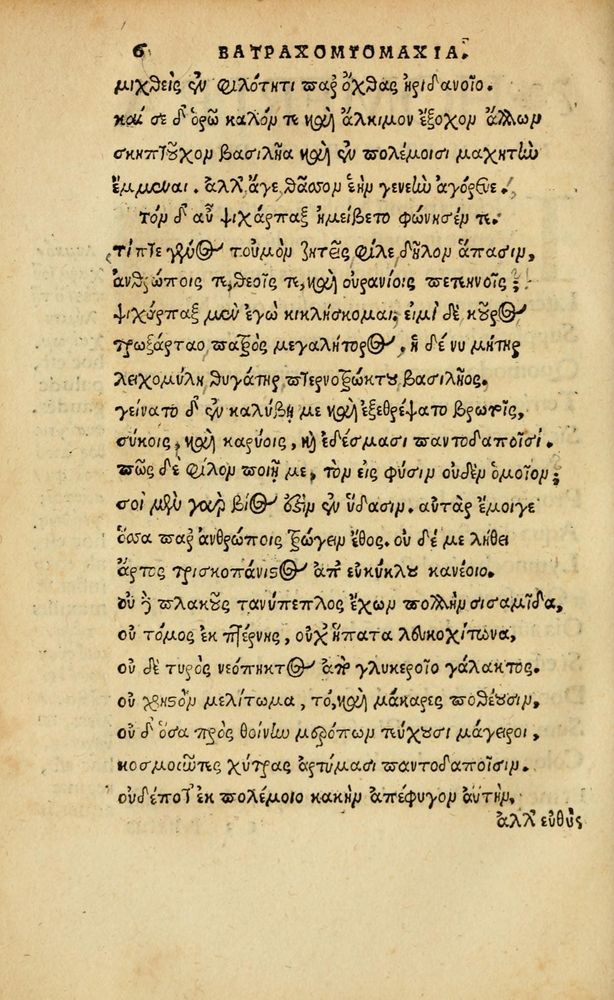 6 ΒΑΤΡΑΧΟΜΥΟΜΑΧΙΑ.
μιχθεὶς ἐν φιλότητι παρ᾽ ὄχθας ἠριδανοῖο.
καί σε δ᾽ ὁρῶ καλόν τε καὶ ἄλκιμον ἔξοχον ἄλλων
σκηπτοῦχον βασιλῆα καὶ ἐν πολέμοισι μαχητὴν
ἔμμεναι. ἀλλ᾽ ἄγε θᾶσσον ἑὴν γενεὴν ἀγόρευε.
τὸν δ᾽ αὖ ψιχάρπαξ ἠμείβετο φώνησέν τε.
τίπτε γένος τοὐμὸν ζητεῖς φίλε δῆλον ἅπασιν,
ἀνθρώποις τε, θεοῖς τε, καὶ οὐρανίοις πετεηνοῖς;
ψιχάρπαξ μὲν ἐγὼ κικλήσκομαι, εἰμὶ δὲ κοῦρος
τρωξάρταο πατρὸς μεγαλήτορος, ἡ δέ νυ μήτηρ
λειχομύλη θυγάτηρ πτερνοτρώκτου βασιλῆος.
γείνατο δ᾽ ἐν καλύβῃ με καὶ ἐξεθρέψατο βρωτοῖς,
σύκοις, καὶ καρύοις, καὶ ἐδέσμασι παντοδαποῖσι.
πῶς δὲ φίλον ποιῇ με, τὸν εἰς φύσιν οὐδὲν ὁμοῖον;
σοὶ μὲν γὰρ βίος ἐστὶν ἐν ὕδασιν. αὐτὰρ ἔμοιγε
ὅσα παρ᾽ ἀνθρώποις τρώγειν ἔθος. οὐ δέ με λήθει
ἄρτος τρισκοπάνιστος ἀπ᾽ εὐκύκλου κανέοιο.
οὐ δὲ πλακοῦς τανύπεπλος ἔχων πολλὴν σισαμῖδα,
οὐ τόμος ἐκ πτέρνης, οὐχ ἥπατα λευκοχίτωνα,
οὐ δὲ τυρὸς νεόπηκτος ἀπὸ γλυκεροῖο γάλακτος.
οὐ χρηστὸν μελίτωμα, τό, καὶ μάκαρες ποθέουσιν,
οὐ δ᾽ ὅσα πρὸς θοίνην μερόπων τεύχουσι μάγειροι,
κοσμοιῶντες χύτρας ἀρτύμασι παντοδαποῖσιν.
οὐδέποτ᾽ ἐκ πολέμοιο κακὴν ἀπέφυγον ἀυτήν,
ἀλλ᾽ εὐθὺς